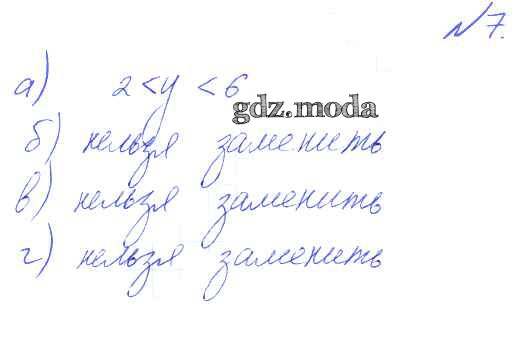 №7.
а) 2<y<6
gdz.moda
б) нельзя заменить
в) нельзя заменить
г) нельзя заменить